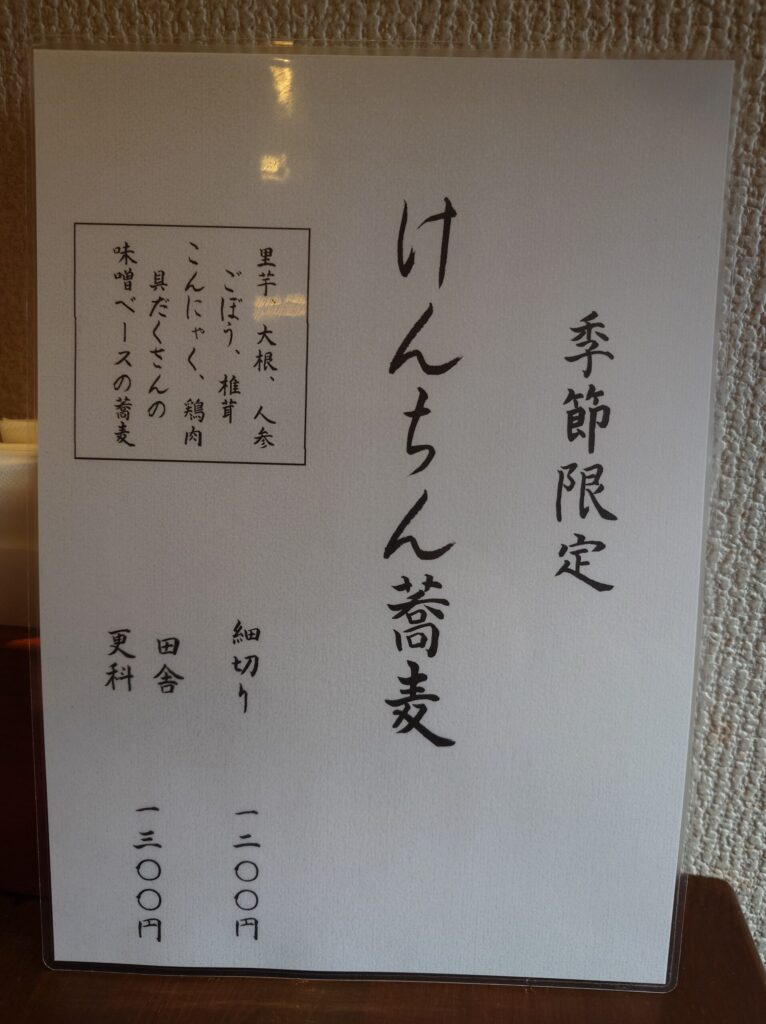 季節限定
けんちん蕎麦
里芋、大根、人参
ごぼう、椎茸
こんにゃく、鶏肉
具だくさんの
味噌ベースの蕎麦
細切り 一二〇〇円
田舎
更科 一三〇〇円